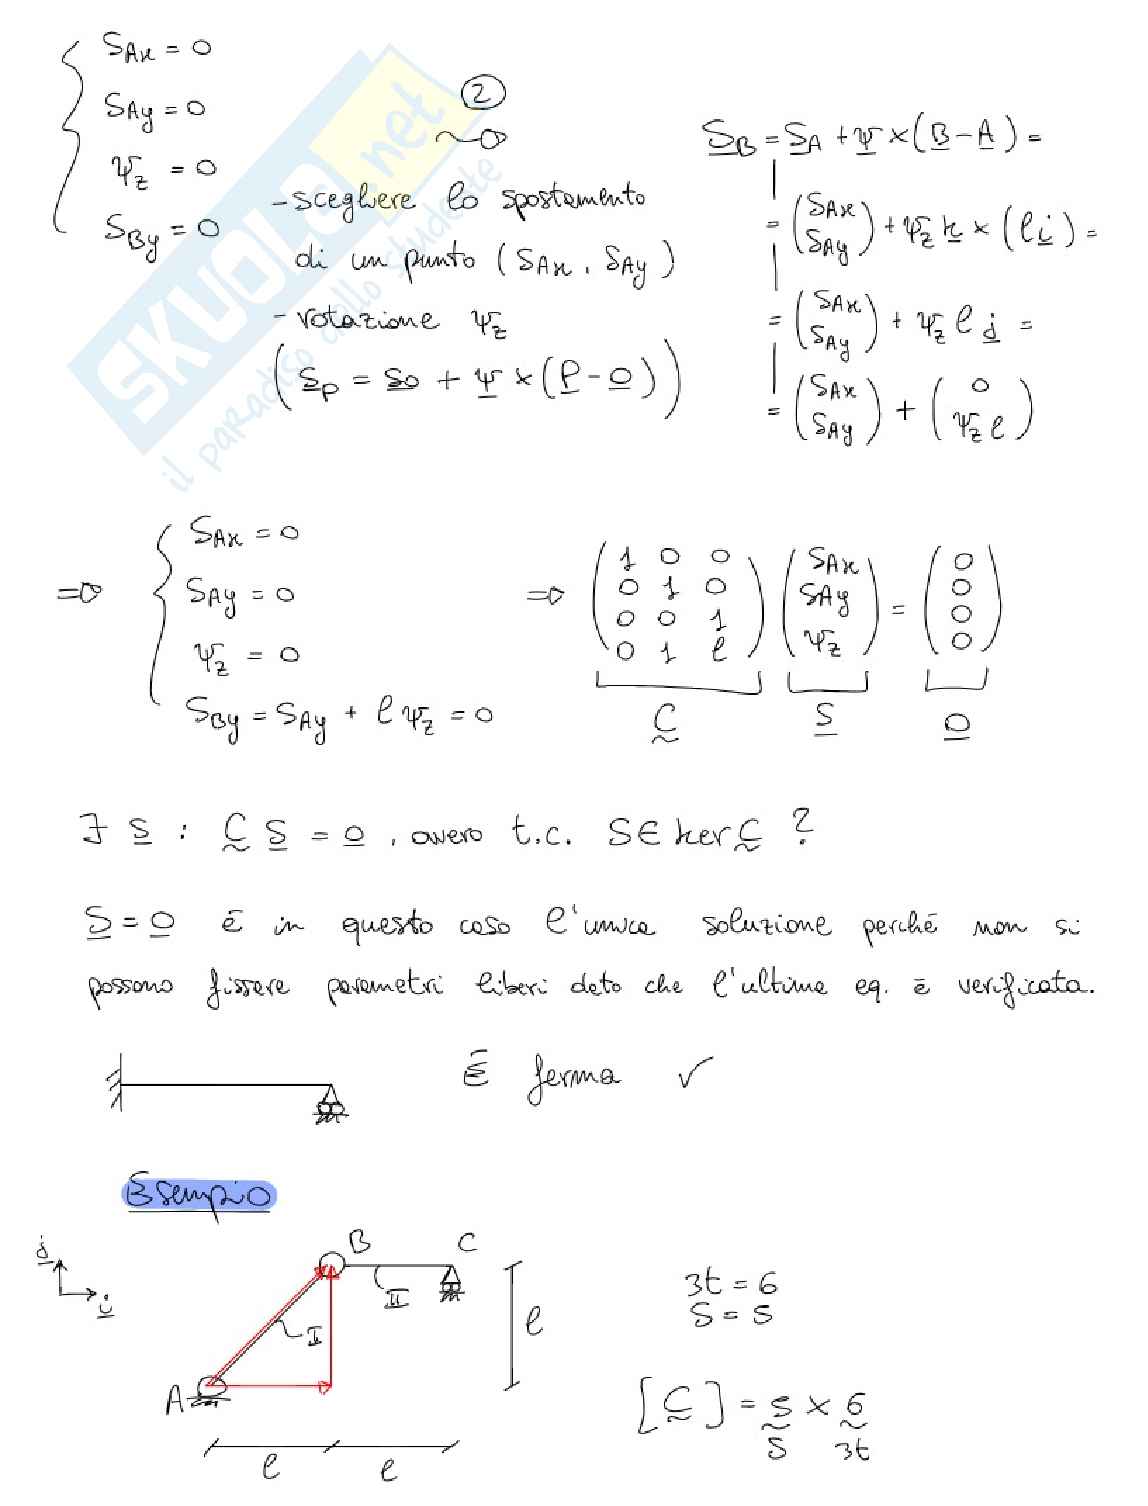 S_Ax = 0
S_Ay = 0
Ψ_z = 0
S_By = 0
②
- scegliere lo spostamento
di un punto (S_Ax, S_Ay)
- rotazione Ψ_z
(S_P = S_O + Ψ × (P - O))
S_B = S_A + Ψ × (B - A) =
= (S_Ax S_Ay) + Ψ_z k × (l i) =
= (S_Ax S_Ay) + Ψ_z l j =
= (S_Ax S_Ay) + (0 Ψ_z l)
SKUOLA.net
il paradiso dello studente
⇒ S_Ax = 0
S_Ay = 0
Ψ_z = 0
S_By = S_Ay + l Ψ_z = 0
⇒ (1 0 0 (S_Ax (0
0 1 0 S_Ay 0
0 0 1 Ψ_z) = 0
0 1 l) 0)
C S 0
∃ S : C S = 0, ovvero t.c. S ∈ ker C ?
S = 0 è in questo caso l'unica soluzione perché non si
possono fissare parametri liberi dato che l'ultima eq. è verificata.
È ferma ✓
Esempio
j
i
B C
II
I
A
l
l l
3t = 6
S = 5
[C] = 5 × 6
S 3t